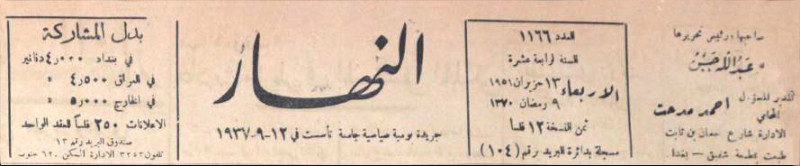 صاحبها ورئيس تحريرها
عبدالله حسن
المدير المسؤول
المحامي
احمد مدحت
الادارة شارع حسان بن ثابت
طبعت بمطبعة شفيق - بغداد
العدد ١١٦٦
السنة الرابعة عشرة
الاربعاء ١٣ حزيران ١٩٥١
٩ رمضان ١٣٧٠
ثمن النسخة ١٢ فلساً
مسجلة بدائرة البريد رقم (١٠٤)
النهار
جريدة يومية سياسية جامعة تأسست في ١٢-٩-١٩٣٧
بدل المشاركة
في بغداد ٤٫٠٠٠ دنانير
في العراق ٤٫٥٠٠ »
في الخارج ٥٫٠٠٠ »
الاعلانات ٢٥٠ فلساً للعقد الواحد
صندوق البريد رقم ١٣
تلفون ٣٢٥٣ الادارة السكن ١٢٠ جنوب